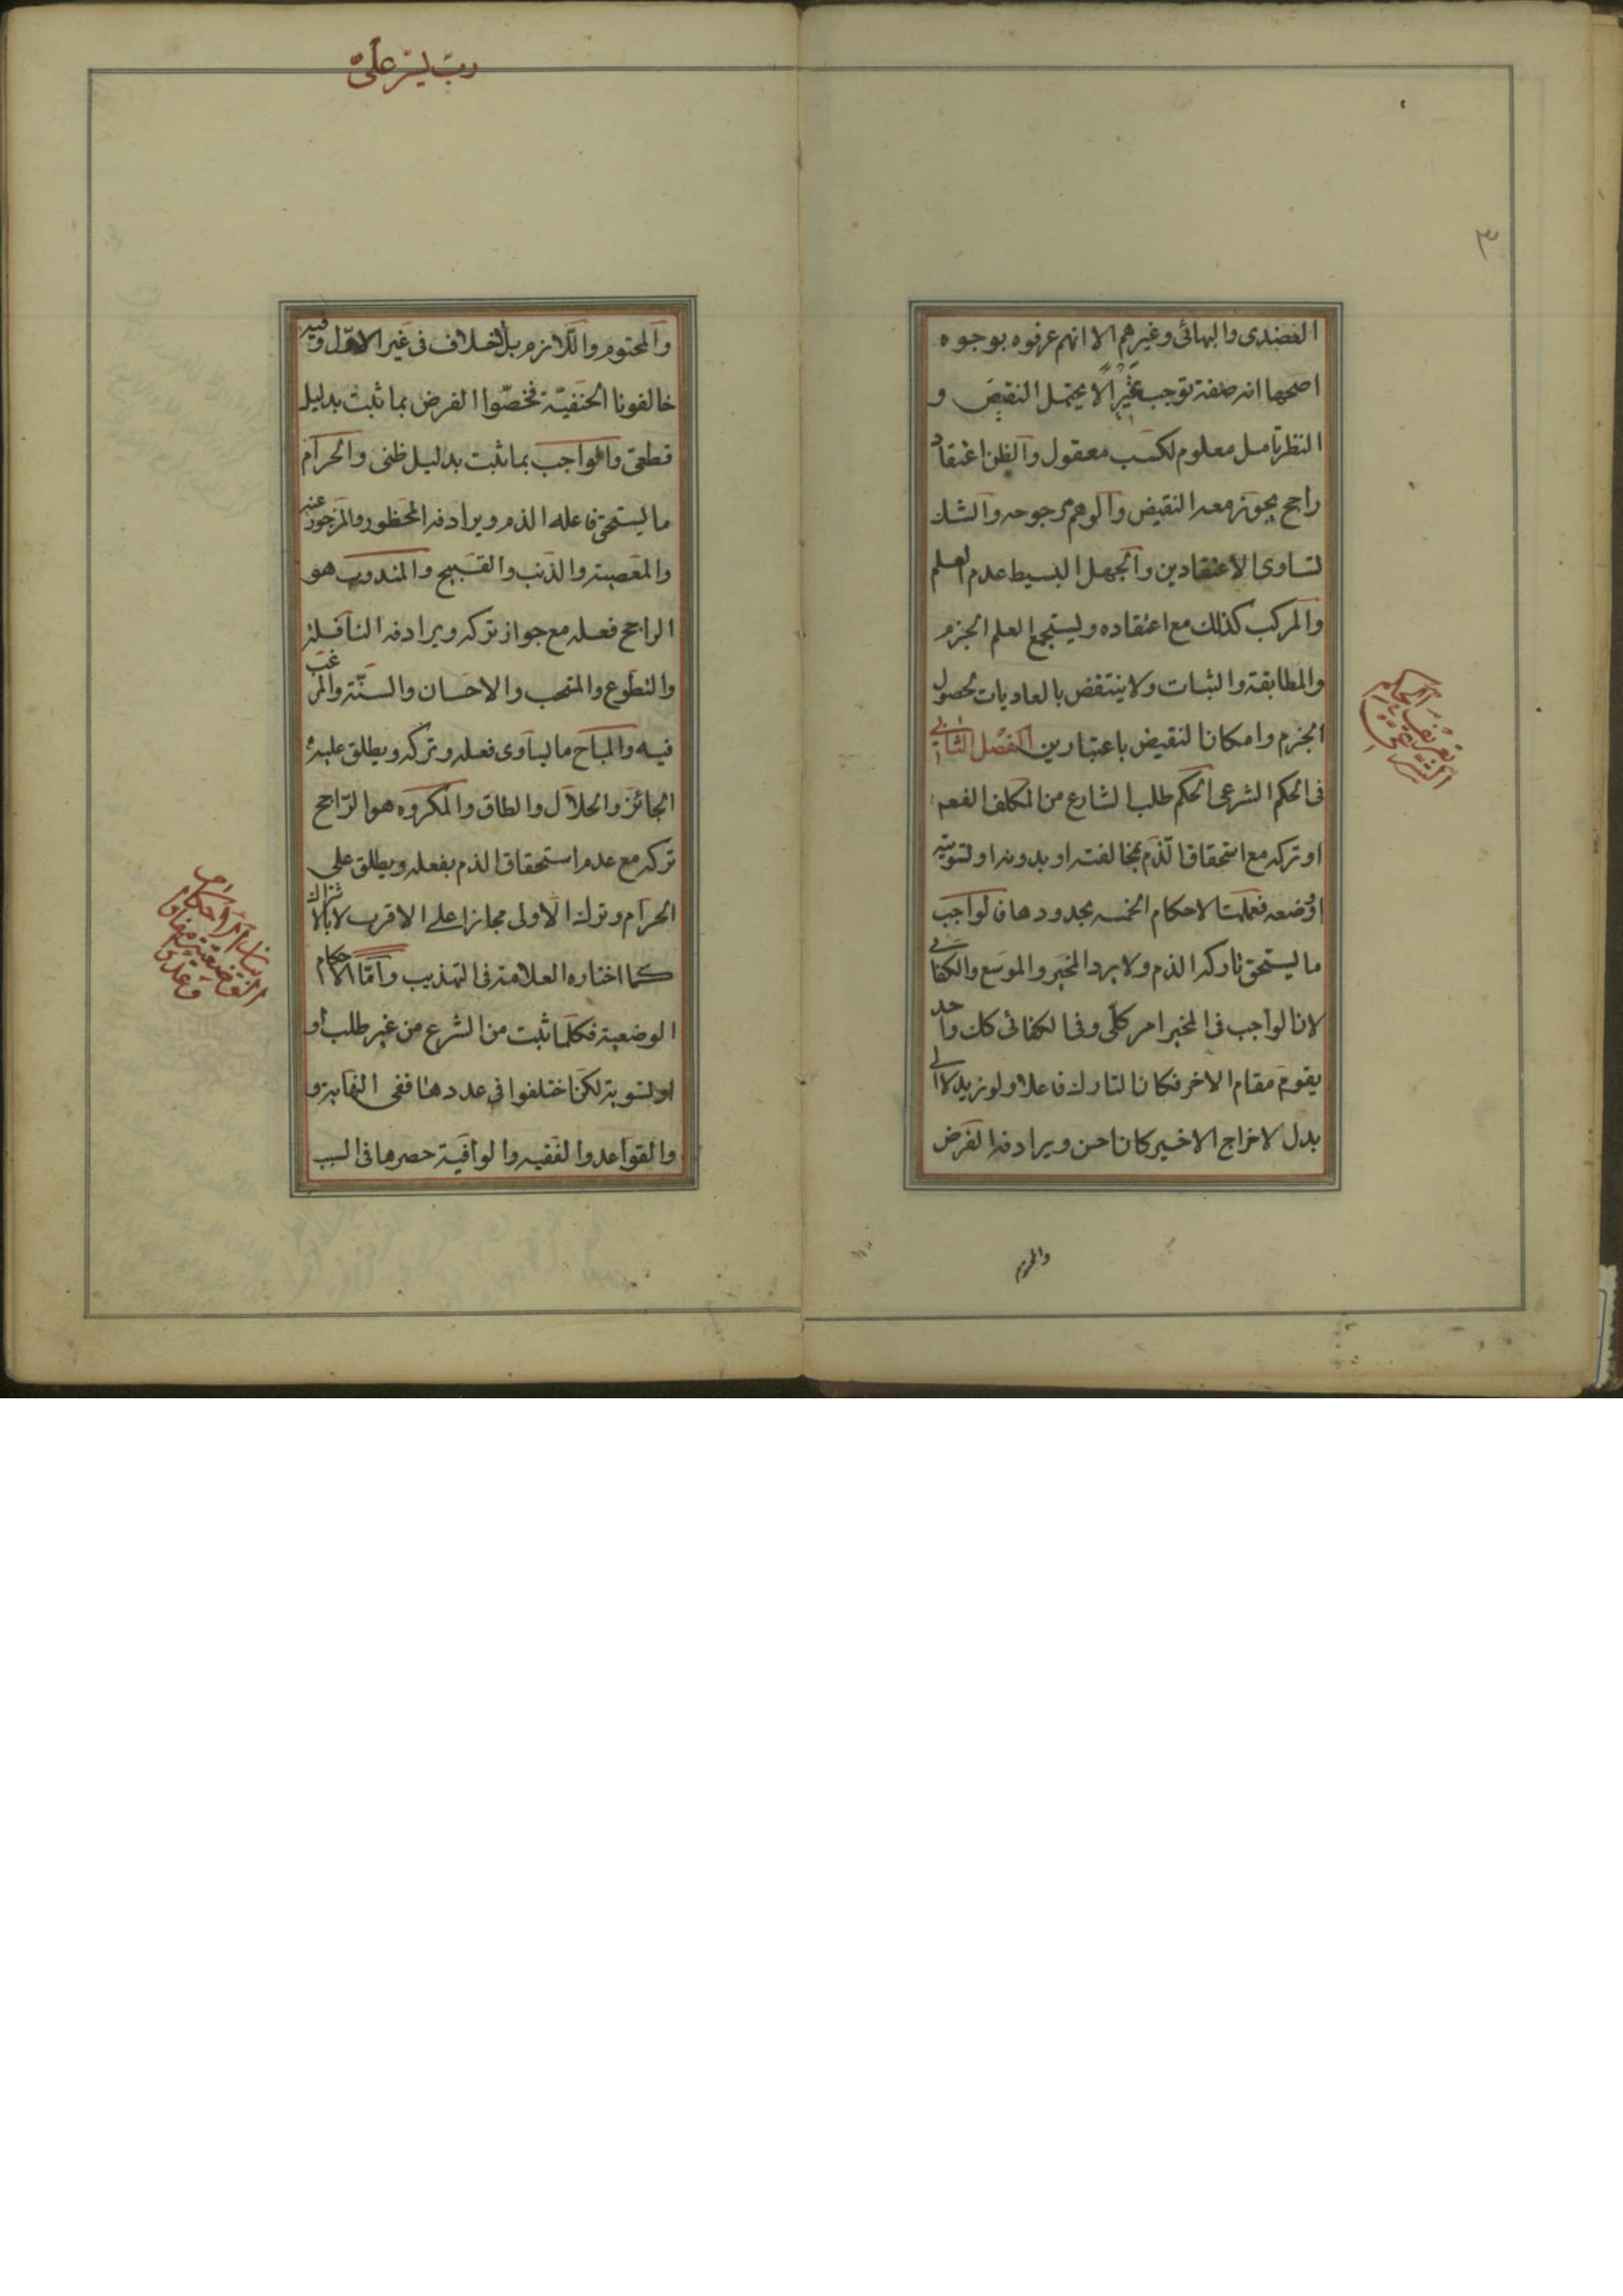 ٣
العضدى والبهائى وغيرهم الا انهم عرفوه بوجوه
اصحها انه صفة توجب تميزا لا يحتمل النقيض و
النظر تامل معلوم لكسب معقول والظن اعتقاد
راجح يجوز معه النقيض والوهم مرجوحه والشك
تساوى الاعتقادين والجهل البسيط عدم العلم
والمركب كذلك مع اعتقاده ويستجمع العلم الجزم
والمطابقة والثبات ولا ينتقض بالعاديات لحصول
الجزم وامكان النقيض باعتبارين الفصل الثانى
فى الحكم الشرعى الحكم طلب الشارع من المكلف الفعل
او تركه مع استحقاق الذم بمخالفته او بدونه او تسويته
او وضعه فعلمت الاحكام الخمسه بحدودها فالواجب
ما يستحق تاركه الذم ولا يرد المخير والموسع والكفائى
لان الواجب فى المخير امر كلى وفى الكفائى كل واحد
يقوم مقام الاخر فكان التارك فاعلا ولو زيد لا الى
بدل لاخراج الاخير كان احسن ويرادفه الفرض
تعريف الحكم
الشرعى
رب يسر على
والمحتوم واللازم بلا خلاف فى غير الاول وفيه
خالفونا الحنفية فخصوا الفرض بما ثبت بدليل
قطعى والواجب بما ثبت بدليل ظنى والحرام
ما يستحق فاعله الذم ويرادفه المحظور والمزجور عنه
والمعصية والذنب والقبيح والمندوب هو
الراجح فعله مع جواز تركه ويرادفه النافلة
والتطوع والمستحب والاحسان والسنة والمرغب
فيه والمباح ما يساوى فعله وتركه ويطلق عليه
الجائز والحلال والطلق والمكروه هو الراجح
تركه مع عدم استحقاق الذم بفعله ويطلق على
الحرام وترك الاولى مجازا على الاقرب لا بالاشتراك
كما اختاره العلامة فى التهذيب واما الاحكام
الوضعية فكلما ثبت من الشرع من غير طلب او
او تسوية لكن اختلفوا فى عددها ففى النهاية و
والقواعد والفقيه والوافية حصرها فى السبب
بيان الاحكام
الوضعية